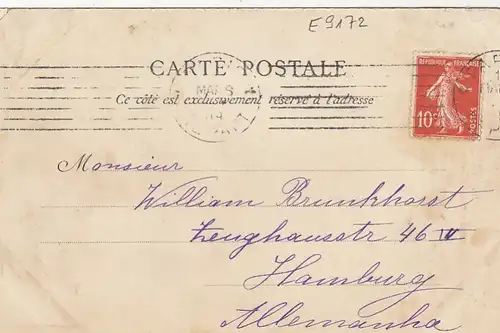 E 9172
CARTE POSTALE
Ce côté est exclusivement réservé à l'adresse
REPUBLIQUE FRANÇAISE
10c
POSTES
Monsieur
William Brunkhorst
Zeughausstr 46 IV
Hamburg
Allemanha